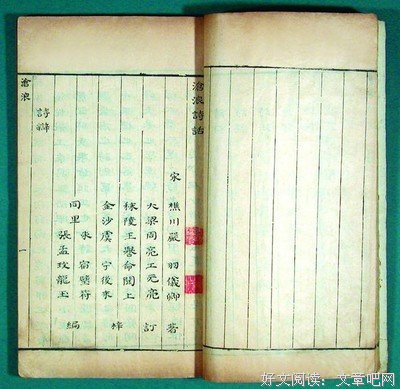 滄浪詩話
宋 樵川嚴 羽儀卿 著
大梁周亮工元亮 訂
秣陵王譽命 上
金沙虞
同里
張孟玫龍玉 編
詩辯
滄浪
好文阅读：文章吧网